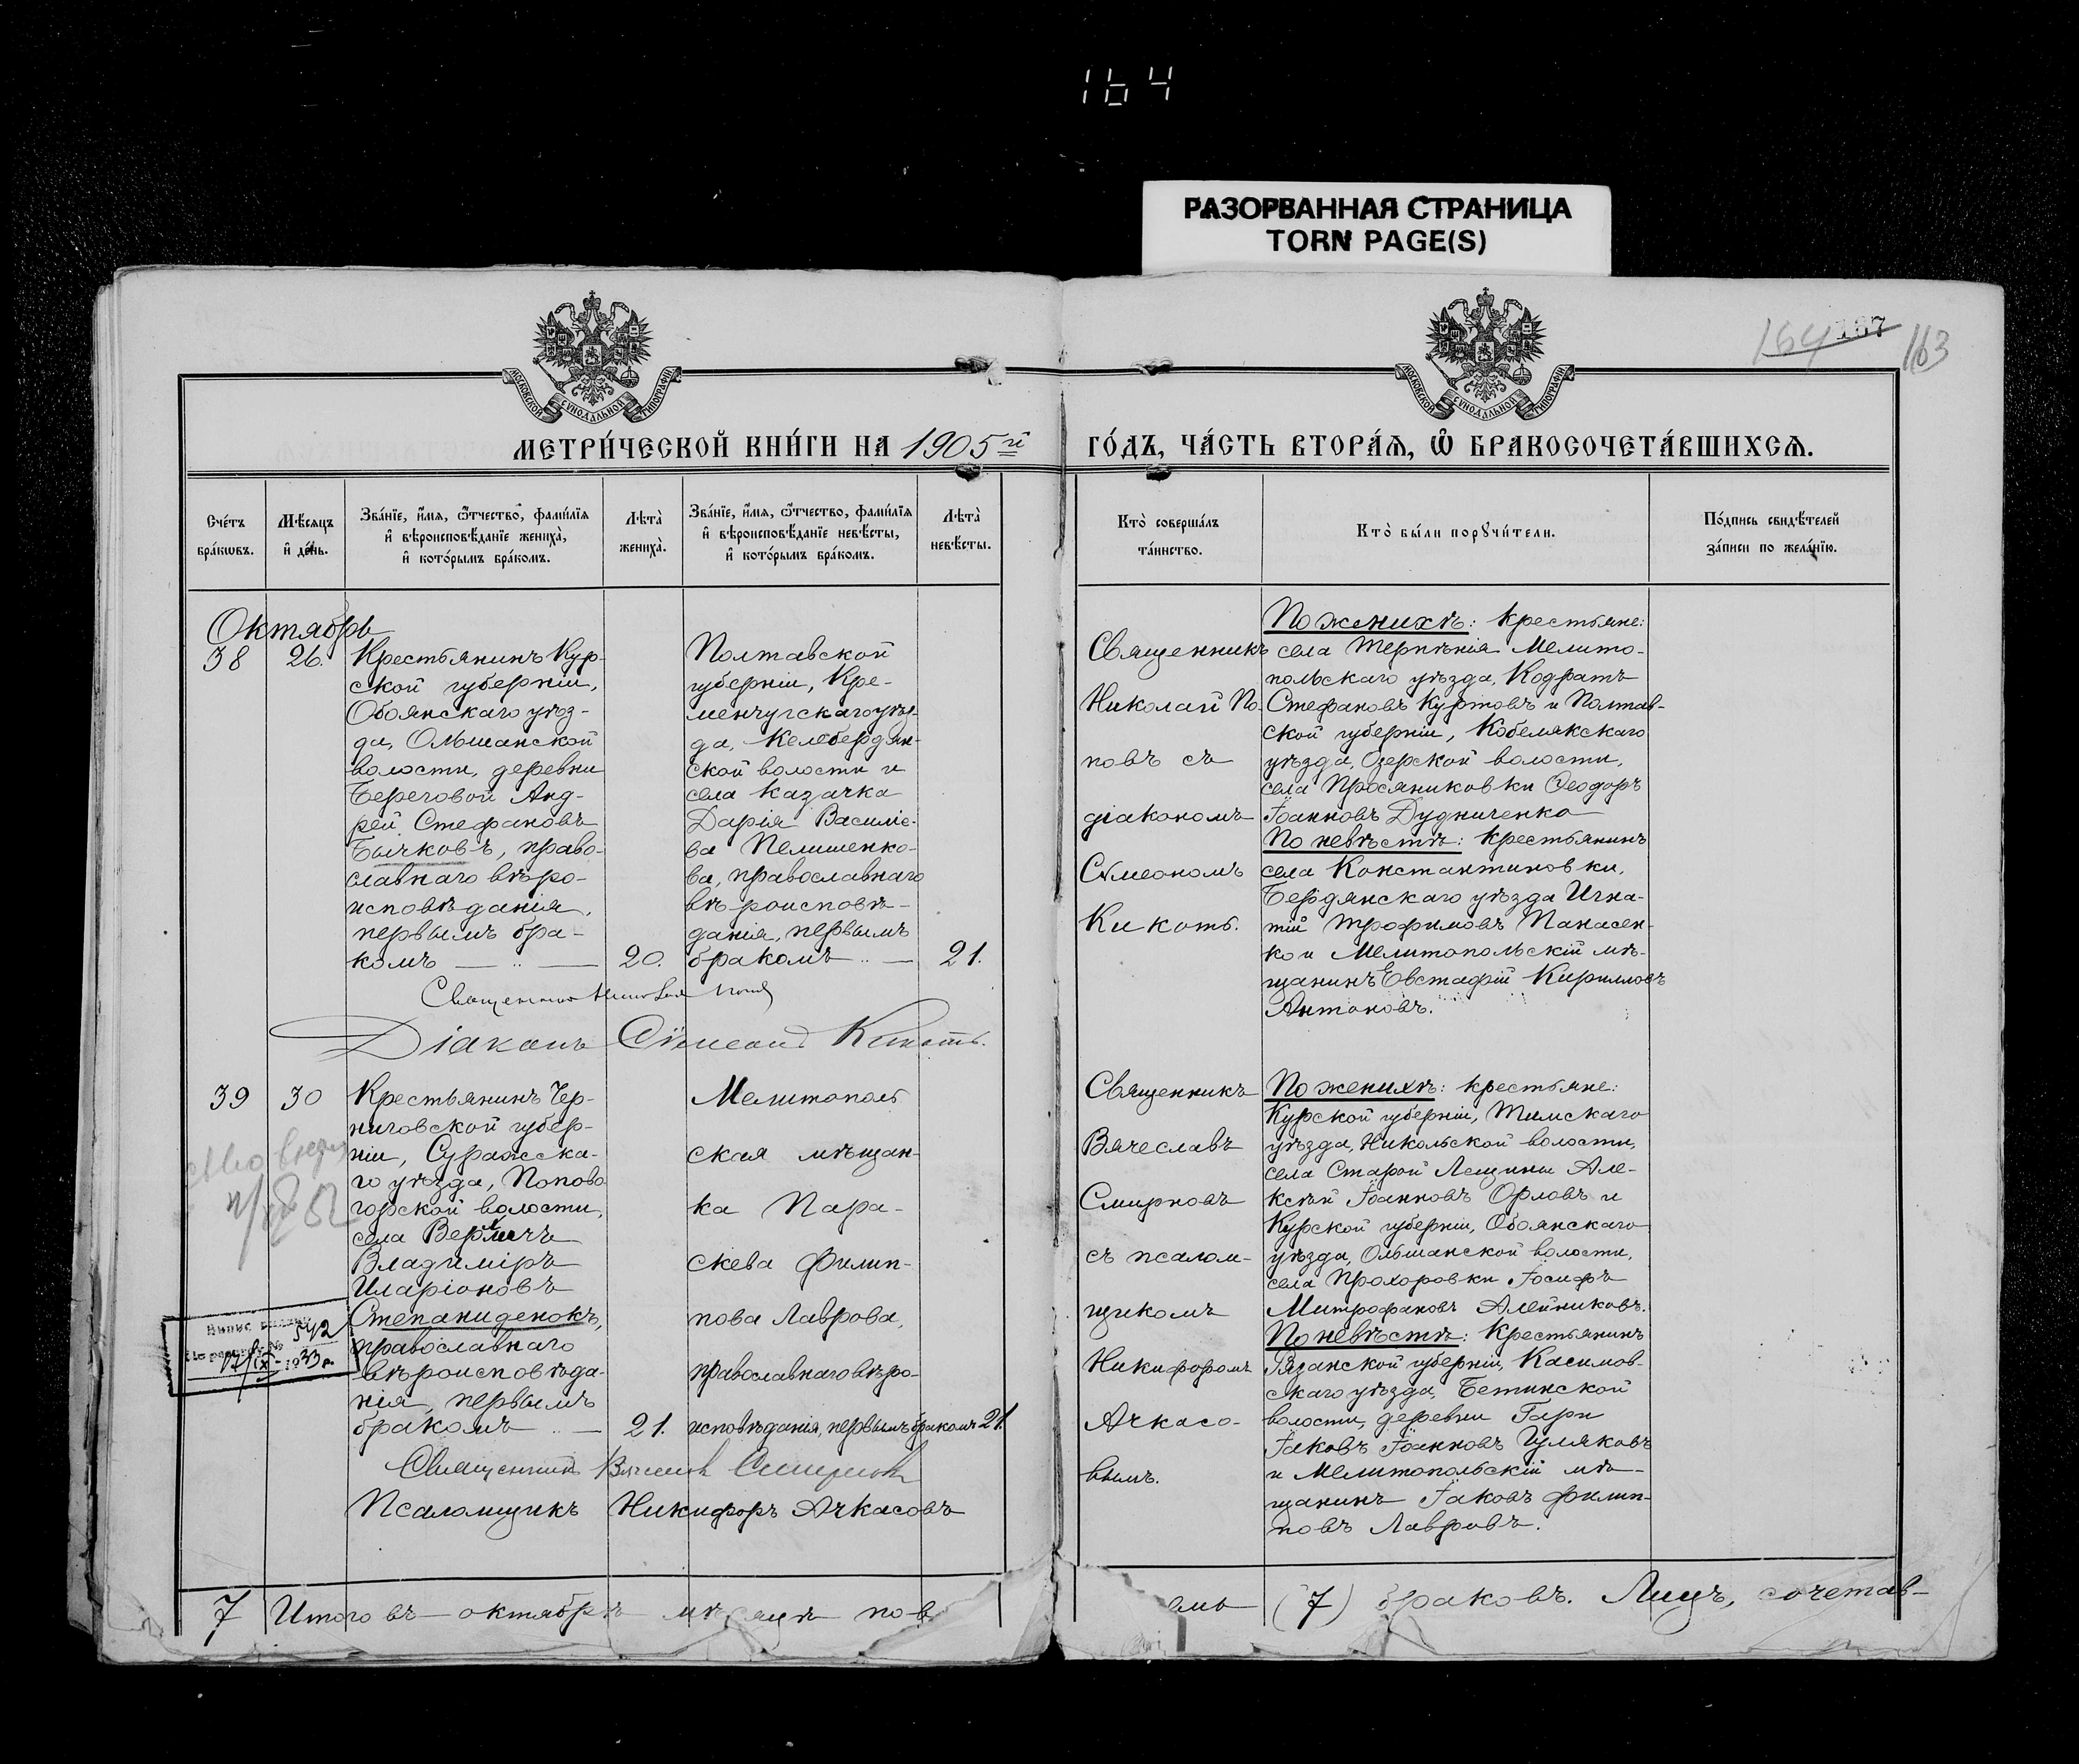 164
РАЗОРВАННАЯ СТРАНИЦА
TORN PAGE(S)
164 167 163
МОСКОВСКОЙ СѴНОДАЛЬНОЙ ТИПОГРАФІИ
МОСКОВСКОЙ СѴНОДАЛЬНОЙ ТИПОГРАФІИ
МЕТРИ́ЧЕСКОЙ КНИ́ГИ НА 1905й
ГО́ДЪ, ЧА́СТЬ ВТОРА́Ѧ, Ѡ҆ БРАКОСОЧЕТА́ВШИХСѦ.
Сче́тъ
бра́кѡвъ.
Мѣ́сяцъ
и҆ де́нь.
Зва́нїе, и҆́мя, ѻ҆́тчество, фами́лїя
и҆ вѣроисповѣ́данїе жениха̀,
и҆ кото́рымъ бра́комъ.
Лѣта̀
жениха̀.
Зва́нїе, и҆́мя, ѻ҆́тчество, фами́лїя
и҆ вѣроисповѣ́данїе невѣ́сты,
и҆ кото́рымъ бра́комъ.
Лѣта̀
невѣ́сты.
Кто̀ соверша́лъ
та́инство.
Кто̀ бы́ли порꙋчи́тели.
По́дпись свидѣ́телей
за́писи по жела́нїю.
Октябрь
38
26.
Крестьянинъ Кур-
ской губерніи,
Обоянскаго уѣз-
да, Ольшанской
волости, деревни
Береговой Анд-
рей Стефановъ
Бычковъ, право-
славнаго вѣро-
исповѣданія,
первымъ бра-
комъ
20.
Полтавской
губерніи, Кре-
менчугскаго уѣз-
да, Келебердян-
ской волости и
села казачка
Дарія Василіе-
ва Пелишенко-
ва, православнаго
вѣроисповѣ-
данія, первымъ
бракомъ
21.
Священникъ
Николай По-
повъ съ
діакономъ
Сѵмеономъ
Кикоть.
По женихѣ: крестьяне:
села Терпѣнія Мелито-
польскаго уѣзда, Кодратъ
Стефановъ Куртовъ и Полтав-
ской губерніи, Кобелякскаго
уѣзда, Озерской волости,
села Просяниковки Ѳеодоръ
Іоанновъ Дудниченко
По невѣстѣ: крестьянинъ
села Константиновки,
Бердянскаго уѣзда Игна-
тій Трофимовъ Панасен-
ко и Мелитопольскій мѣ-
щанинъ Евстафій Кирилловъ
Антоновъ.
Священникъ Николай Попов
Діаконъ Сѵмеонъ Кикоть.
39
30
Крестьянинъ Чер-
ниговской губер-
ніи, Суражска-
го уѣзда, Попово-
горской волости,
села
Владиміръ
Иларіоновъ
Степаниденокъ,
православнаго
вѣроисповѣда-
нія, первымъ
бракомъ
21.
Мелитополь
ская мѣщан-
ка Пара-
скева Филип-
пова Лаврова,
православнаго вѣро-
исповѣданія, первымъ бракомъ
21.
Священникъ
Вячеславъ
Смирновъ
съ псалом-
щикомъ
Никифоромъ
Ачкасо-
вымъ.
По женихѣ: крестьяне:
Курской губерніи, Тимскаго
уѣзда, Никольской волости,
села Старой Лещины Але-
ксѣй Іоанновъ Орловъ и
Курской губерніи, Обоянскаго
уѣзда, Ольшанской волости,
села Прохоровки Іосифъ
Митрофановъ Алейниковъ.
По невѣстѣ: крестьянинъ
Рязанской губерніи, Касимов-
скаго уѣзда, Бетинской
волости, деревни Гари
Іаковъ Іоанновъ Гуляковъ
и Мелитопольскій мѣ-
щанинъ Іаковъ Филип-
повъ Лавровъ.
542
17/IX 1933 г.
Священникъ Вячеслав Смирнов
Псаломщикъ Никифоръ Ачкасовъ
7
Итого въ октябрѣ мѣсяцѣ
(7) браковъ. Лицъ, сочетав-